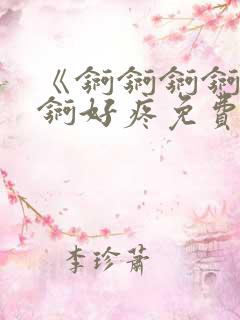 《锕锕锕锕
锕好疼免费
李珍萧